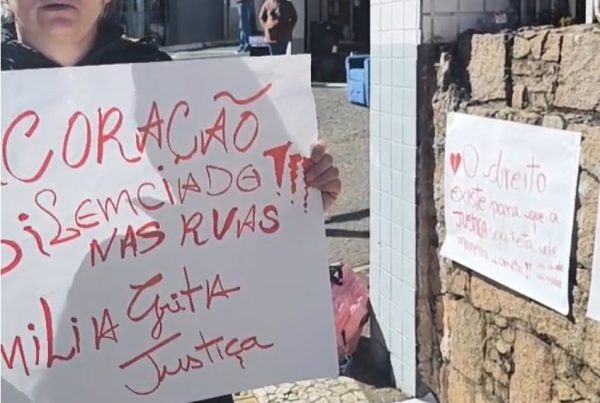 CORAÇÃO
SiLENCIADO!!!
NAS RUAS
MILIA Grita
Justiça
O direito
existe para que a
JUSTIÇA seja feita de
maneira correta!!